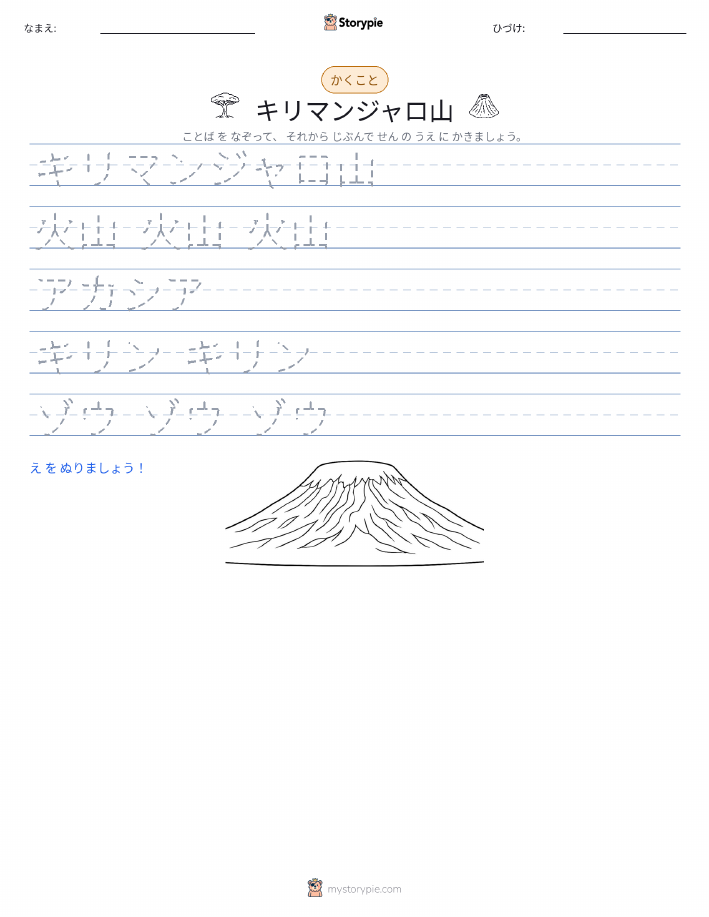 なまえ:
Storypie
ひづけ:
かくこと
キリマンジャロ山
ことば を なぞって、 それから じぶんで せん の うえ に かきましょう。
キリマンジャロ山
火山 火山 火山
アカシア
キリン キリン
ゾウ ゾウ ゾウ
え を ぬりましょう！
mystorypie.com